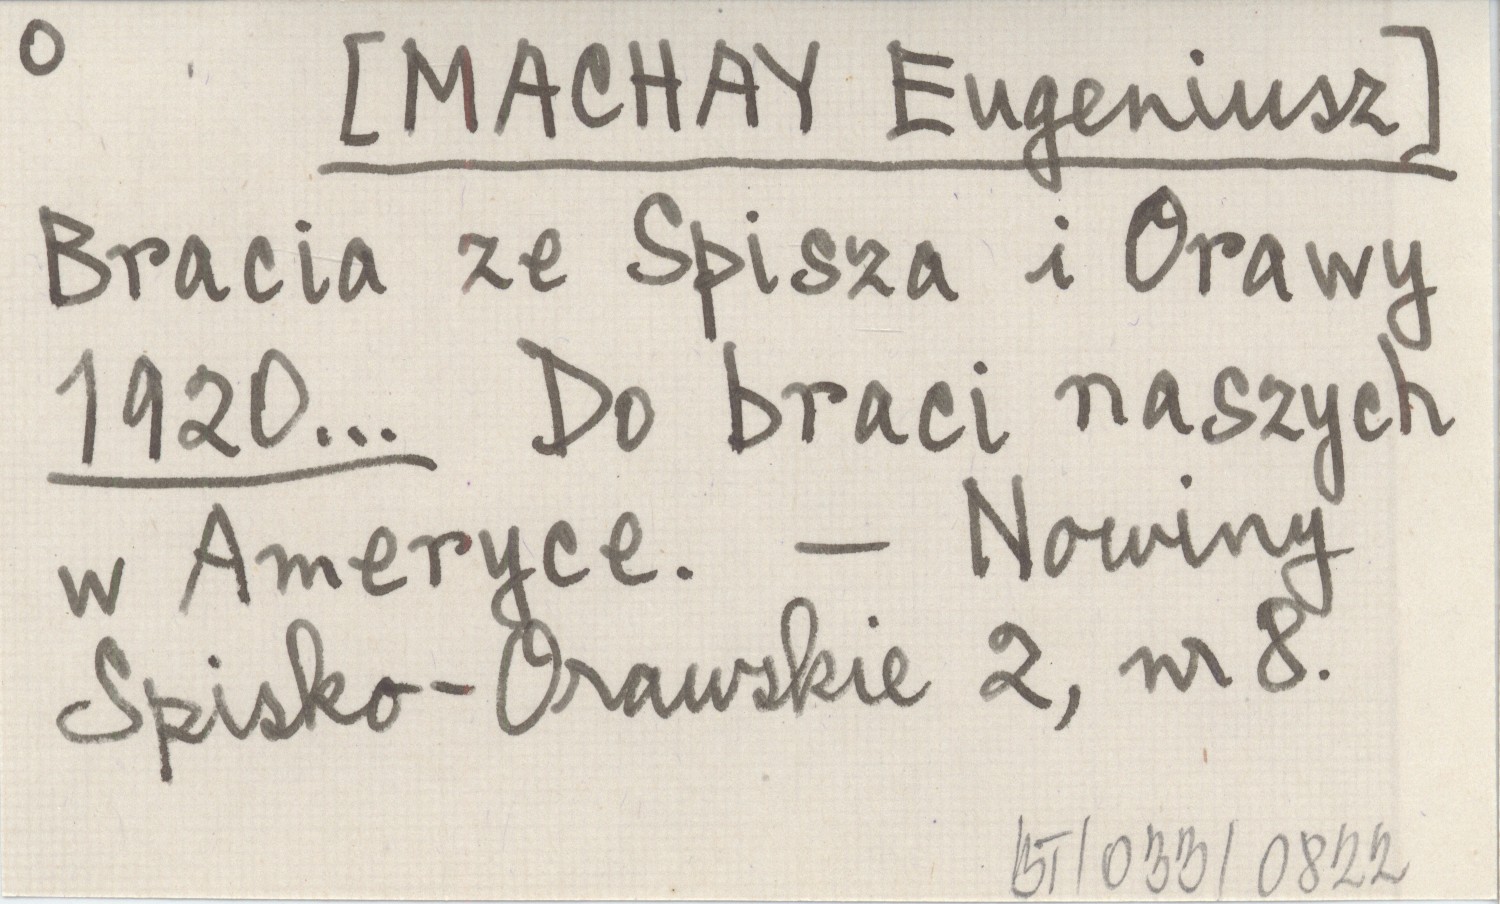 O
[MACHAY Eugeniusz]
Bracia ze Spisza i Orawy
1920... Do braci naszych
w Ameryce. — Nowiny
Spisko-Orawskie 2, nr 8.
BT/033/0822